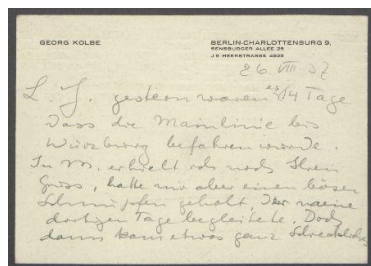 GEORG KOLBE
BERLIN-CHARLOTTENBURG 9,
SENSBURGER ALLEE 26
J 9 HEERSTRASSE
26. VIII 37
L. J. gestern waren es 14 Tage
dass die Mainlinie bis
Würzburg befahren wurde.
In M. erhielt ich noch Ihren
Gruss, hatte mir aber einen bösen
Schnupfen geholt, der meine
dortigen Tage begleitete. Doch
dann kam etwas ganz Schreckliches